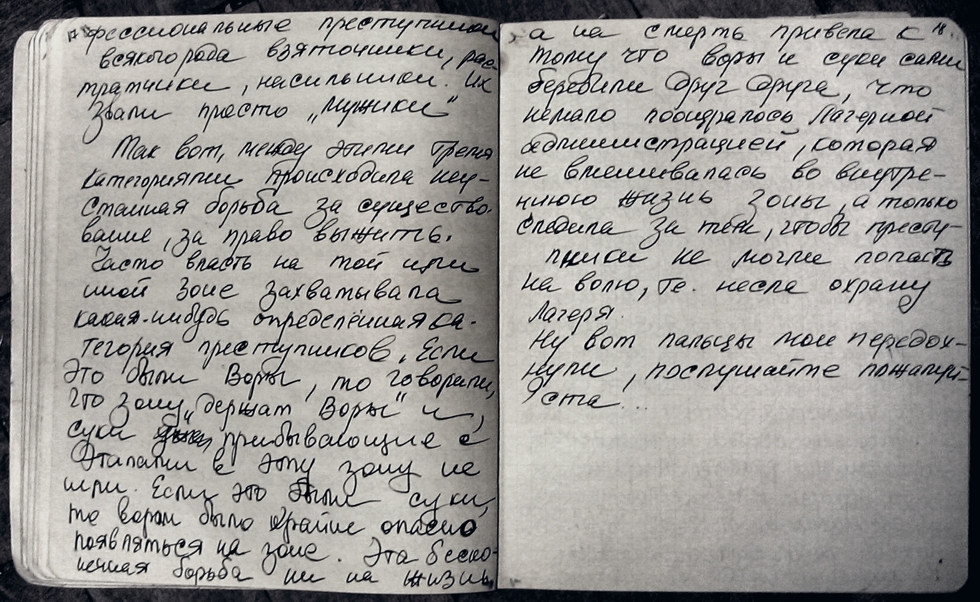 фессиональные преступники
всякого рода взяточники, рас-
тратчики, насильники. Их
Звали просто „Мужики"
Так вот, между этими тремя
категориями происходила неу-
станная борьба за существо-
вание, за право выжить.
Часто власть на той или
иной зоне захватывала
какая-нибудь определённая ка-
тегория преступников. Если
это были Воры, то говорили,
что зону „держат Воры" и,
суки прибывающие с
Этапами в эту зону не
шли. Если это были суки,
то ворам было крайне опасно
появляться на зоне. Эта беско-
нечная борьба не на жизнь,
18.
а на смерть привела к
тому что воры и суки сами
перебили друг друга, что
немало поощралось Лагерной
администрацией, которая
не вмешивалась во внутре-
ннюю жизнь зоны, а только
следила за тем, чтобы престу-
пники не могли попасть
на волю, те. несла охрану
Лагеря.
Ну вот пальцы мои передох-
нули, послушайте пожалуй-
ста...